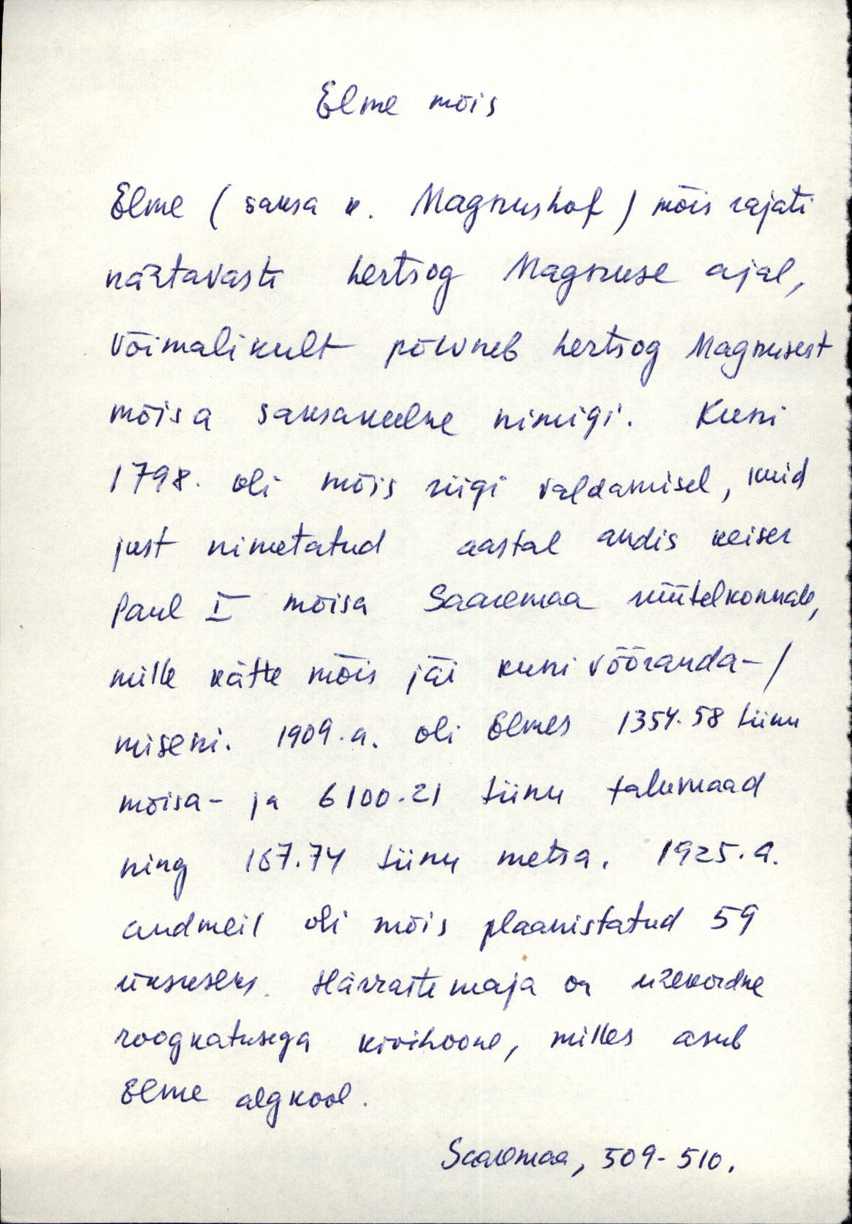 Elme mõis
Elme (saksa k. Magnushof) mõis rajati
nähtavasti hertsog Magnuse ajal,
võimalikult põlvneb hertsog Magnusest
mõisa saksakeelne nimigi. Kuni
1798. oli mõis riigi valdamisel, kuid
just nimetatud aastal andis keiser
Paul I mõisa Saaremaa rüütelkonnale,
mille kätte mõis jäi kuni võõranda-/
miseni. 1909.a. oli Elmes 1354.58 tiinu
mõisa- ja 6100.21 tiinu talumaad
ning 167.74 tiinu metsa. 1925.a.
andmeil oli mõis plaanistatud 59
üksuseks. Härrastemaja on ühekordne
roogkatusega kivihoone, milles asub
Elme algkool.
Saaremaa, 509-510.